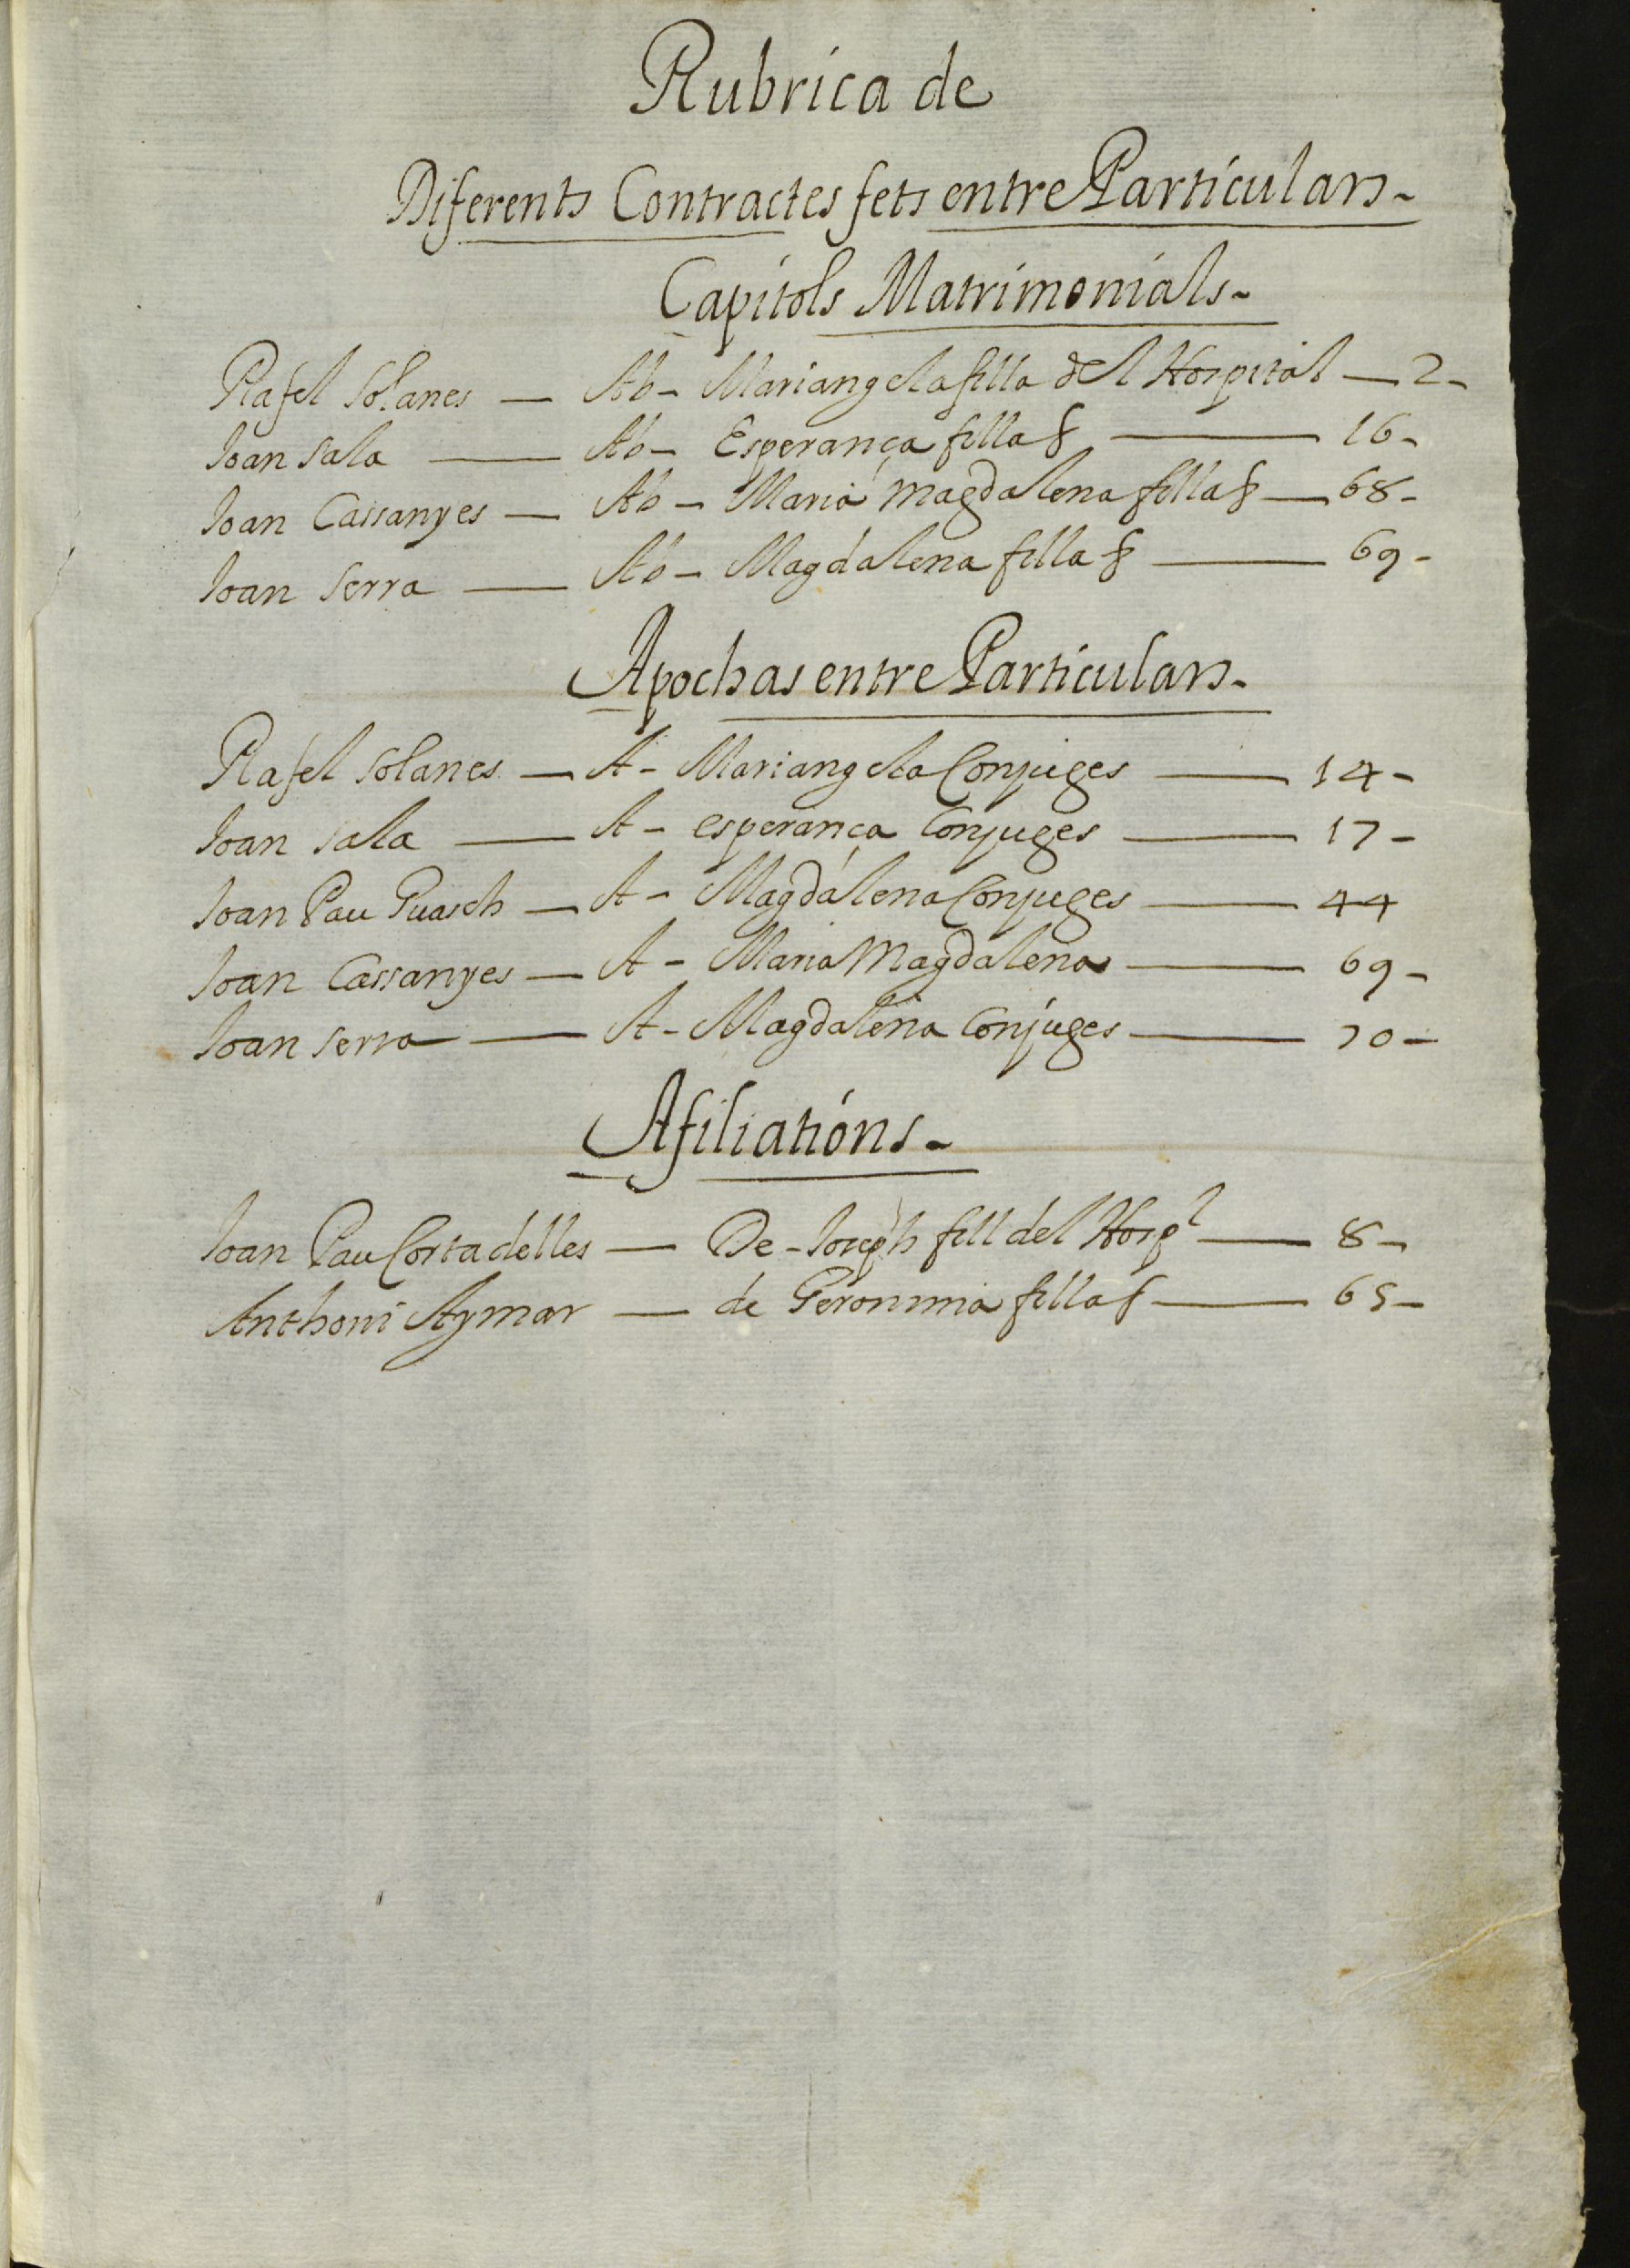 Rubrica de
Diferents Contractes fets entre Particulars -
Capitols Matrimonials -
Rafel Solanes — Ab - Mariangela filla del Hospital — 2 -
Ioan Sala — Ab - Esperança filla — 16 -
Ioan Cassanyes — Ab - Maria Magdalena filla — 68 -
Ioan Serra — Ab - Magdalena filla — 69 -
Apochas entre Particulars -
Rafel Solanes — A - Mariangela Conjuges — 14 -
Ioan Sala — A - esperança Conjuges — 17 -
Ioan Pau Guasch — A - Magdalena Conjuges — 44
Ioan Cassanyes — A - Maria Magdalena — 69 -
Ioan Serra — A - Magdalena Conjuges — 70 -
Afiliations -
Ioan Pau Cortadelles — De - Joseph fill del Hospl — 8 -
Anthoni Aymar — de Geronima filla — 65 -